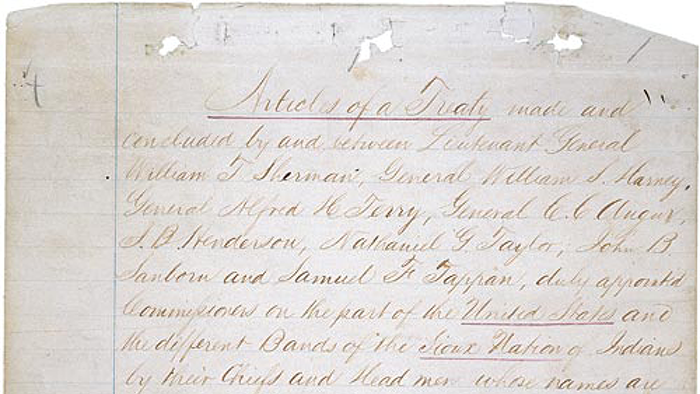 4
Articles of a Treaty made and
concluded by and between Lieutenant General
William T. Sherman, General William S. Harney,
General Alfred H. Terry, General C. C. Augur,
J. B. Henderson, Nathaniel G. Taylor, John B.
Sanborn and Samuel F. Tappan, duly appointed
Commissioners on the part of the United States and
the different Bands of the Sioux Nation of Indians
by their Chiefs and Head men whose names are